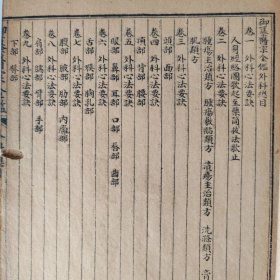 御纂醫宗金鑑外科總目
卷一 外科心法要訣
人身經絡圖歌起至藥筒拔法歌止
卷二 外科心法要訣
腫瘍主治類方 腫瘍敷貼類方 潰瘍主治類方 洗滌類方 膏
麻類方
卷三 外科心法要訣
頭部 面部
卷四 外科心法要訣
項部 背部 腰部
卷五 外科心法要訣
眼部 鼻部 耳部 口部 唇部 齒部
卷六 外科心法要訣
舌部 喉部 胸乳部
卷七 外科心法要訣
腹部 腋部 肋部 內癰部
卷八 外科心法要訣
肩部 臑部 臂部 手部
卷九 外科心法要訣
下部 臀部